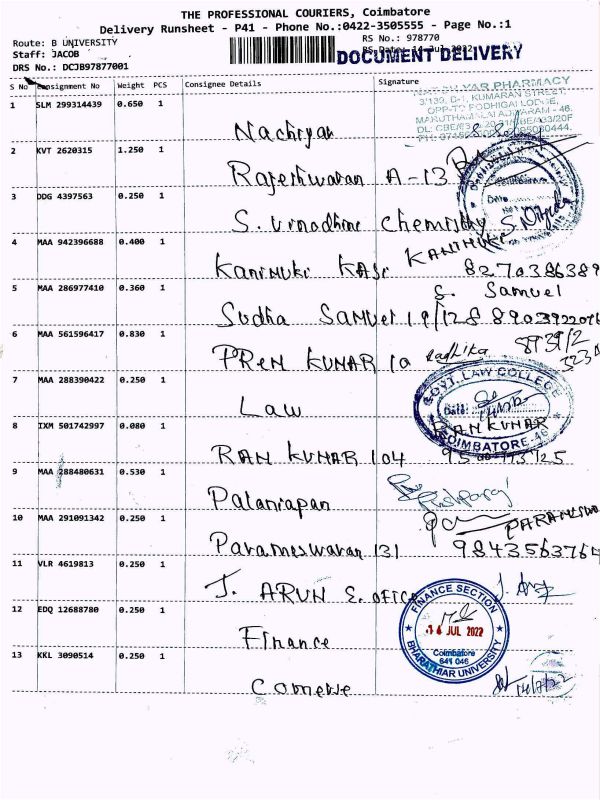 THE PROFESSIONAL COURIERS, Coimbatore
Delivery Runsheet - P41 - Phone No.:0422-3505555 - Page No.:1
Route: B UNIVERSITY
RS No.: 978770
Staff: JACOB
RS Date: 14 Jul 2022
DOCUMENT DELIVERY
DRS No.: DCJB97877001
S No Consignment No Weight PCS Consignee Details Signature
1 SLM 299314439 0.650 1 Nachiyar
PHARMACY
3/133, D-1, KUMARAN STREET,
OPP-TO PODHIGAI LODGE,
2 KVT 2620315 1.250 1 Rajeshwaran A-13
3 DDG 4397563 0.250 1 S. Vinodhine Chemistry
Date
4 MAA 942396688 0.400 1 Kanimuki KASI KANIMUKI
8270386389
5 MAA 286977410 0.360 1 Sudha Samuel 19/128 S. Samuel
8903922096
6 MAA 561596417 0.830 1 PREM KUMAR 10 Radhika
7 MAA 288390422 0.250 1 Law
GOVT. LAW COLLEGE
Date:
COIMBATORE-46
8 IXM 501742997 0.080 1 RAM KUMAR 104 RAM KUMAR
9 MAA 288480631 0.530 1 Palaniapan Pushparaj
10 MAA 291091342 0.250 1 Parameswaran 131
9843563764
11 VLR 4619813 0.250 1 J. ARUN E. office
12 EDQ 12688780 0.250 1 Finance
FINANCE SECTION
14 JUL 2022
Coimbatore
641 046
BHARATHIAR UNIVERSITY
13 KKL 3090514 0.250 1
14/7/22